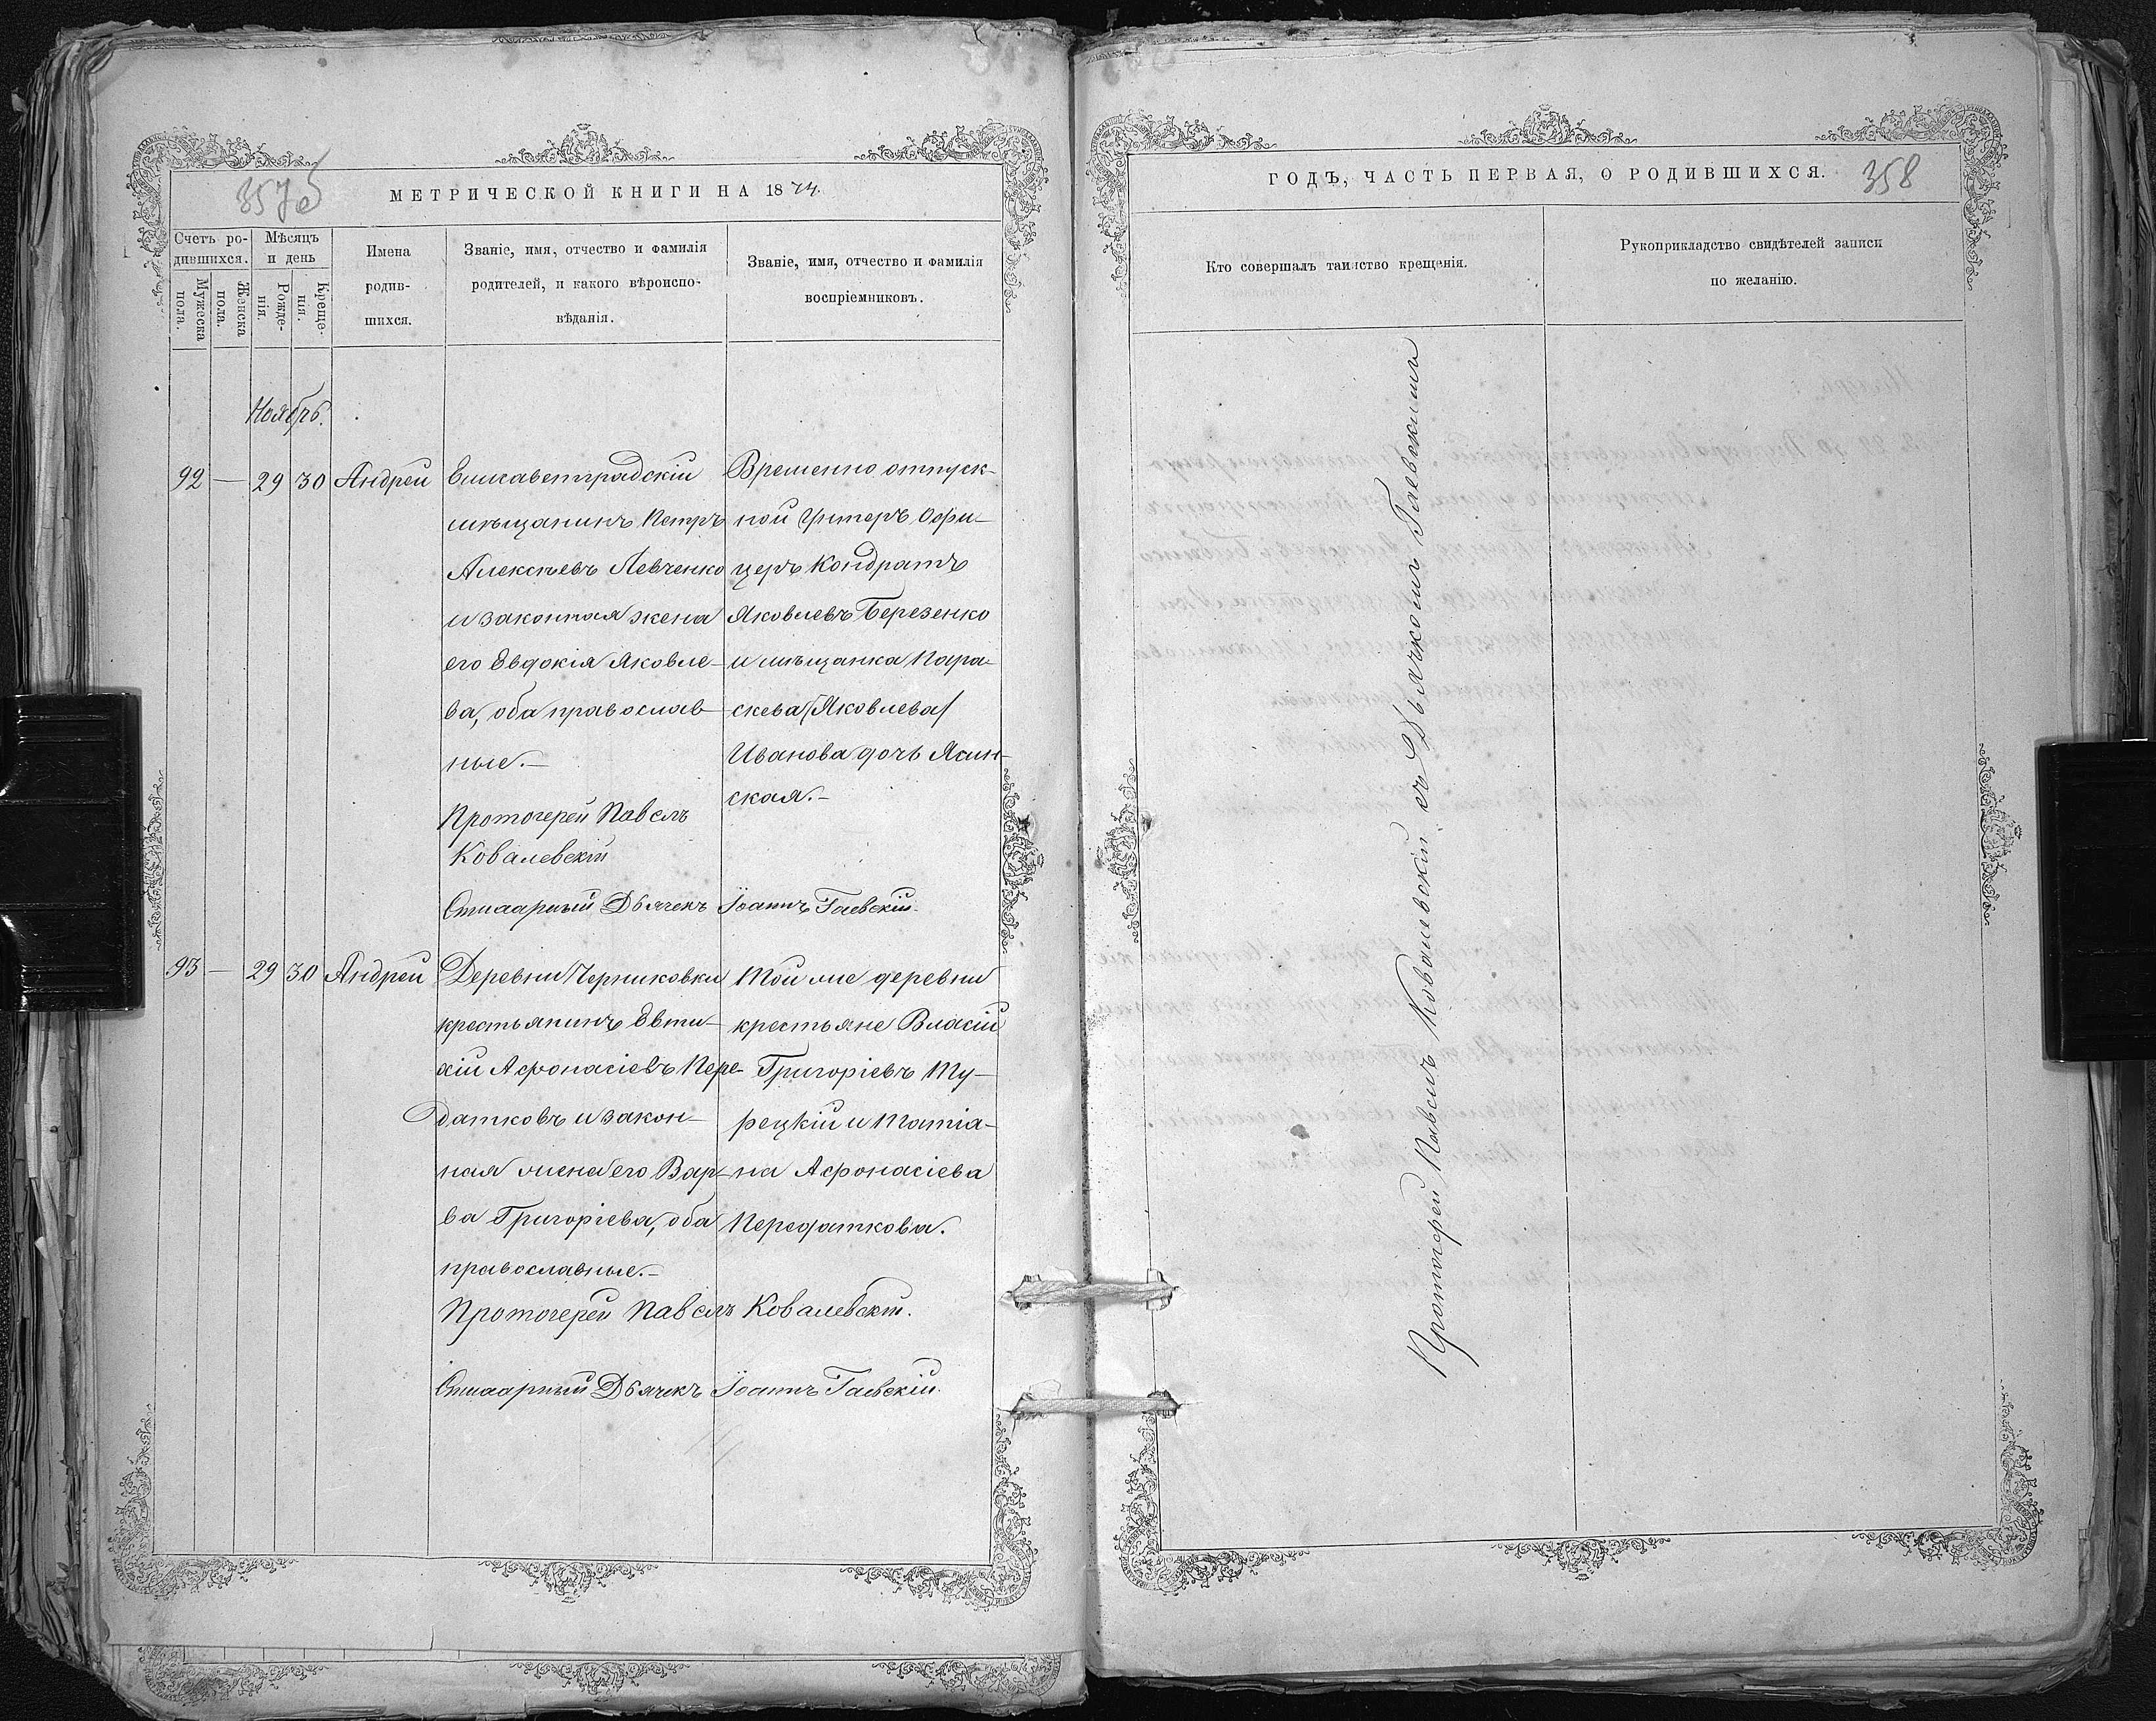 357об
МЕТРИЧЕСКОЙ КНИГИ НА 1874.
Счетъ ро-
дившихся.
Мужеска
пола.
Женска
пола.
Мѣсяцъ
и день
Рожде-
нія.
Креще-
нія.
Имена
родив-
шихся.
Званіе, имя, отчество и фамилія
родителей, и какого вѣроиспо-
вѣданія.
Званіе, имя, отчество и фамилія
воспріемниковъ.
Ноябрь.
92 — 29 30 Андрей
Елисаветградскій
мѣщанинъ Петръ
Алексѣевъ Левченко
и законная жена
его Евдокія Яковле-
ва, оба православ-
ные.—
Протоіерей Павелъ
Ковалевскій
Временно отпуск-
ной Унтеръ Офи-
церъ Кондратъ
Яковлевъ Березенко
и мѣщанка Пара-
скева /Яковлева/
Иванова дочь Ясин-
ская.—
Дьячекъ Іоаннъ Гаевскій.
93 — 29 30 Андрей
Деревни Черниковки
крестьянинъ Евти-
хій Афонасіевъ Пере-
датковъ и закон-
ная жена его Вар-
ва Григоріева, оба
православные.—
Той же деревни
крестьяне Власій
Григоріевъ Ту-
рецкій и Татіа-
на Афонасіева
Передаткова.
Протоіерей Павелъ Ковалевскій.
Дьячекъ Іоаннъ Гаевскій.
ГОДЪ, ЧАСТЬ ПЕРВАЯ, О РОДИВШИХСЯ.
358
Кто совершалъ таинство крещенія.
Рукоприкладство свидѣтелей записи
по желанію.
Протоіерей Павелъ Ковалевскій съ Дьячкомъ Гаевскимъ